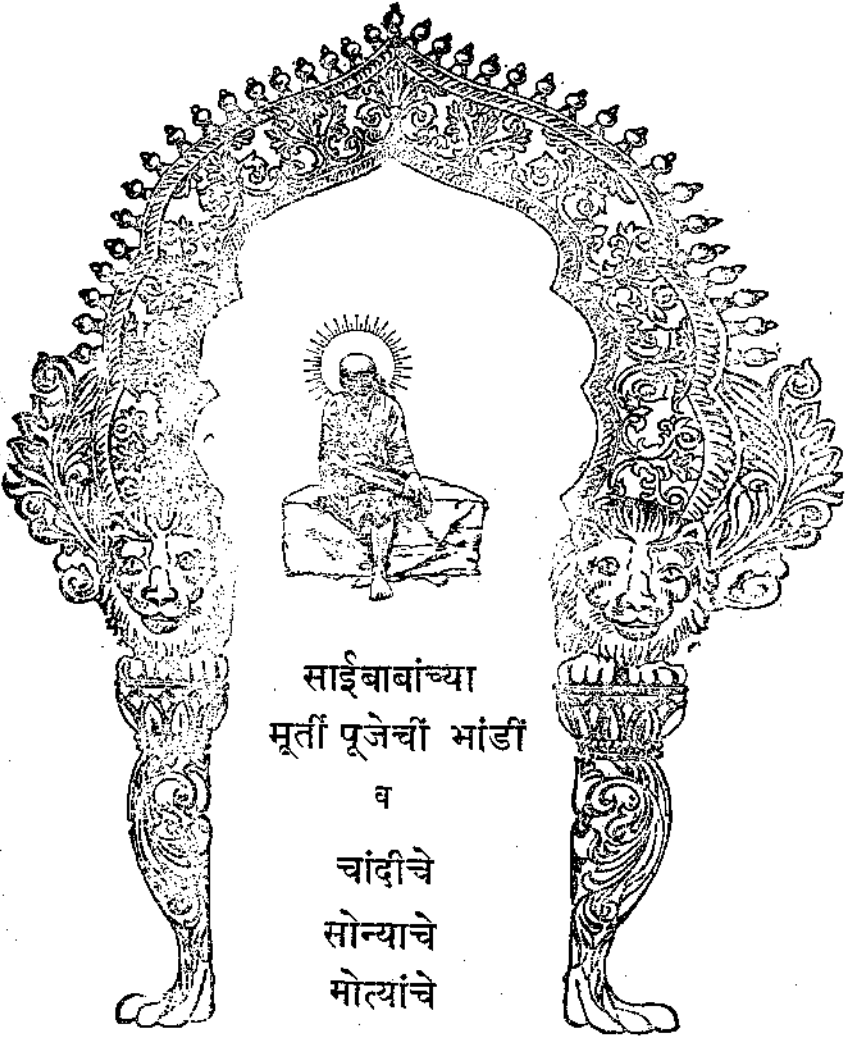 साईबाबांच्या
मूर्ती पूजेचीं भांडीं
व
चांदीचे
सोन्याचे
मोत्यांचे